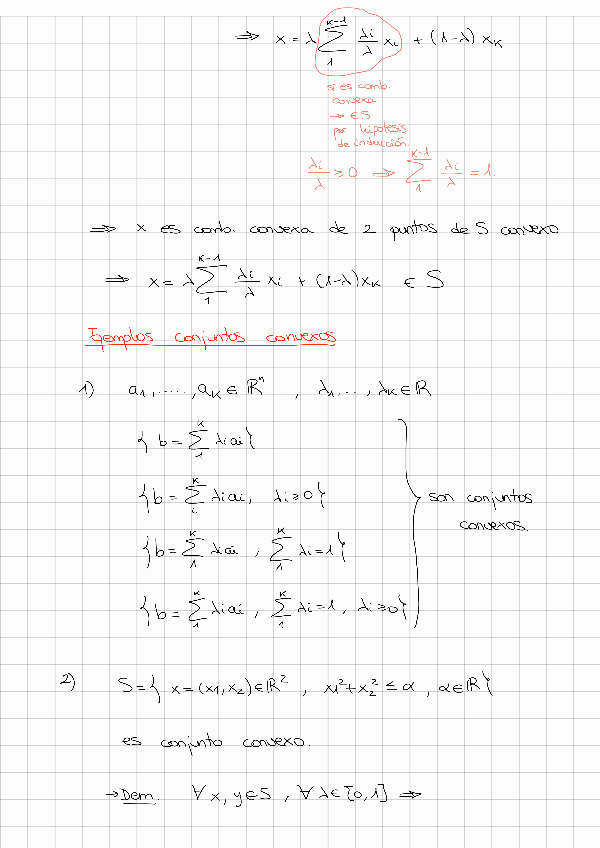 ⇒ x = λ ∑_1^{K-1} λi/λ xi + (1-λ) xK
si es comb.
convexa
→ ∈ S
por hipotesis
de inducción.
λi/λ ≥ 0 ⇒ ∑_1^{K-1} λi/λ = 1.
⇒ x es comb. convexa de 2 puntos de S convexo
⇒ x = λ ∑_1^{K-1} λi/λ xi + (1-λ)xK ∈ S
Ejemplos conjuntos convexos
1) a1,....,aK ∈ ℝⁿ , λ1,..., λK ∈ ℝ
{ b = ∑_1^K λiai }
{ b = ∑_i^K λiai, λi ≥ 0 }
{ b = ∑_1^K λiai , ∑_1^K λi = 1 }
{ b = ∑_1^K λiai , ∑_1^K λi = 1, λi ≥ 0 }
son conjuntos
convexos.
2) S = { x = (x1, x2) ∈ ℝ² , x1² + x2² ≤ α , α ∈ ℝ }
es conjunto convexo.
→ Dem. ∀ x, y ∈ S , ∀ λ ∈ [0,1] ⇒